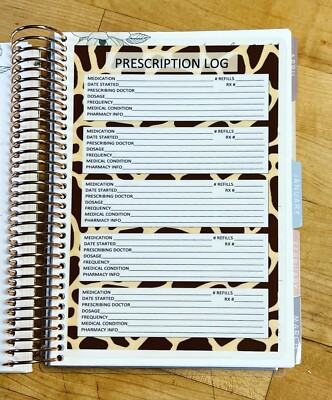 PRESCRIPTION LOG
MEDICATION # REFILLS
DATE STARTED RX #
PRESCRIBING DOCTOR
DOSAGE
FREQUENCY
MEDICAL CONDITION
PHARMACY INFO
MEDICATION # REFILLS
DATE STARTED RX #
PRESCRIBING DOCTOR
DOSAGE
FREQUENCY
MEDICAL CONDITION
PHARMACY INFO
MEDICATION # REFILLS
DATE STARTED RX #
PRESCRIBING DOCTOR
DOSAGE
FREQUENCY
MEDICAL CONDITION
PHARMACY INFO
MEDICATION # REFILLS
DATE STARTED RX #
PRESCRIBING DOCTOR
DOSAGE
FREQUENCY
MEDICAL CONDITION
PHARMACY INFO
MEDICATION # REFILLS
DATE STARTED RX #
PRESCRIBING DOCTOR
DOSAGE
FREQUENCY
MEDICAL CONDITION
PHARMACY INFO
JANUARY
FEBRUARY
MARCH